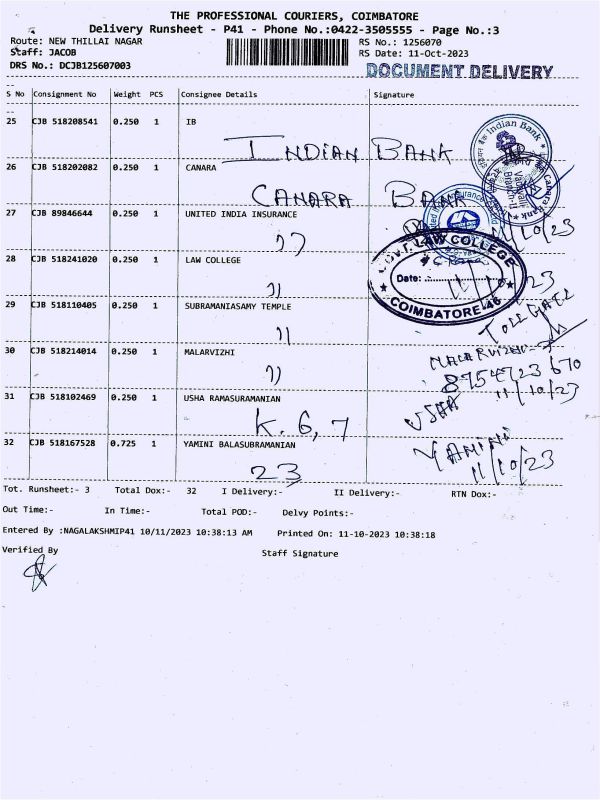 THE PROFESSIONAL COURIERS, COIMBATORE
Delivery Runsheet - P41 - Phone No.:0422-3505555 - Page No.:3
Route: NEW THILLAI NAGAR RS No.: 1256070
Staff: JACOB RS Date: 11-Oct-2023
DRS No.: DCJB125607003 DOCUMENT DELIVERY
S No Consignment No Weight PCS Consignee Details Signature
25 CJB 518208541 0.250 1 IB
INDIAN BANK
Indian Bank
26 CJB 518202082 0.250 1 CANARA
CANARA BANK
Canara Bank
27 CJB 89846644 0.250 1 UNITED INDIA INSURANCE
11/10/23
28 CJB 518241020 0.250 1 LAW COLLEGE
GOVT. LAW COLLEGE
Date:
COIMBATORE-46
29 CJB 518110405 0.250 1 SUBRAMANIASAMY TEMPLE
30 CJB 518214014 0.250 1 MALARVIZHI
MALARVIZHI
8754723670
11/10/23
31 CJB 518102469 0.250 1 USHA RAMASURAMANIAN
K. 6, 7
USHA
32 CJB 518167528 0.725 1 YAMINI BALASUBRAMANIAN
23
YAMINI
11/10/23
Tot. Runsheet:- 3 Total Dox:- 32 I Delivery:- II Delivery:- RTN Dox:-
Out Time:- In Time:- Total POD:- Delvy Points:-
Entered By :NAGALAKSHMIP41 10/11/2023 10:38:13 AM Printed On: 11-10-2023 10:38:18
Verified By Staff Signature